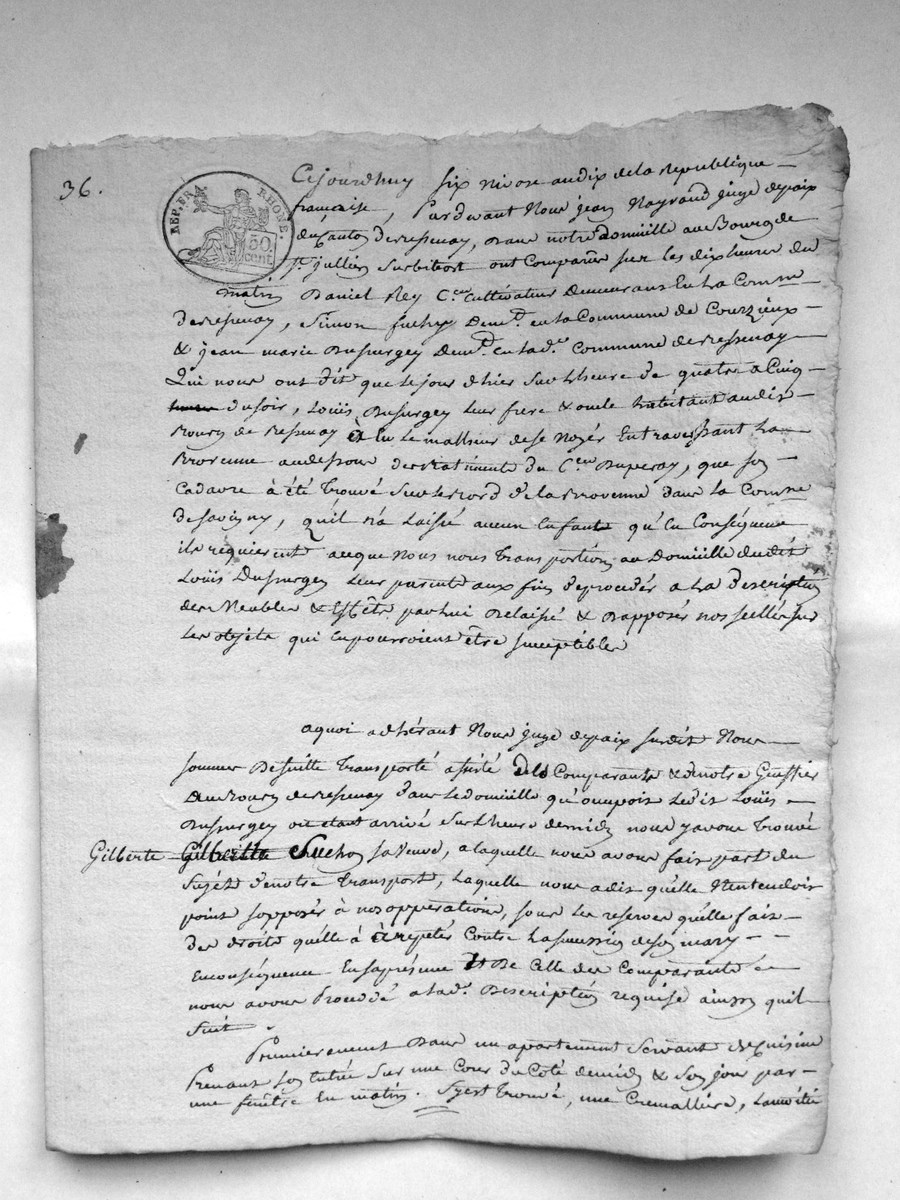 36.
REP. FRA. RHONE.
50 cent.
Cejourdhuy six nivose an dix de la Republique
française, Pardevant Nous jean Nayrand juge depaix
du Canton de Bessenay, Dans notre domicille au Bourg de
St. jullien sur bibost ont Comparus sur les dix heures du
matin Daniel Rey Cen. Cultivateur Demeurant En la Commne
de Bessenay, Simon Demt. en la Commune de Courzieux
& jean marie Dupurgey Demt. en lade. Commune de Bessenay
Qui nous ont dit que le jour d'hier sur l'heure de quatre a Cinq
du soir, Louïs Dupurgey leur frere & oncle habitant audit
Bourg de Bessenay à Eu le malheur de se Noyér En traversant la
Brevenne audessous des Batiments du Cen. Duperay, que son
Cadavre à été trouvé sur le Bord de la Brevenne dans la Commne
de Savigny, qu'il n'a laissé aucun Enfants qu'En Conséquence
ils requierent aceque Nous nous transportions au Domicille dudit
Louïs Dupurgey leur parent aux fins de procedér a la Description
des Meubles & Effêts par lui Delaissé & D'apposér nos scellés sur
les objets qui En pourroient être susceptibles
aquoi adhérant Nous juge depaix susdit Nous
sommes De suitte transporté assisté des Comparants & de notre Greffier
au Bourg de Bessenay dans le domicille qu'occupoit ledit Louïs
Dupurgey ou etant arrivé sur l'heure de midy nous y avons trouvé
Gilberte Suchon sa Veuve, a laquelle nous avons fait part du
Sujét de notre transport, laquelle nous a dit qu'elle N'entendoit
point s'opposér à nos opperations, sous les reserves qu'elle fait
des droits qu'elle à à répetér Contre la succession de son mary
En conséquence En sa présence & De Celle des Comparants
nous avons Procédé a lade. Description requise ainssy qu'il
suit.
Premierement Dans un apartement Servant de Cuisine
Prenant son Entrée sur une Cour du Coté de midy & son jour par
une fenêtre En matin. S'y est trouvé, une Cremalliere, la moitié